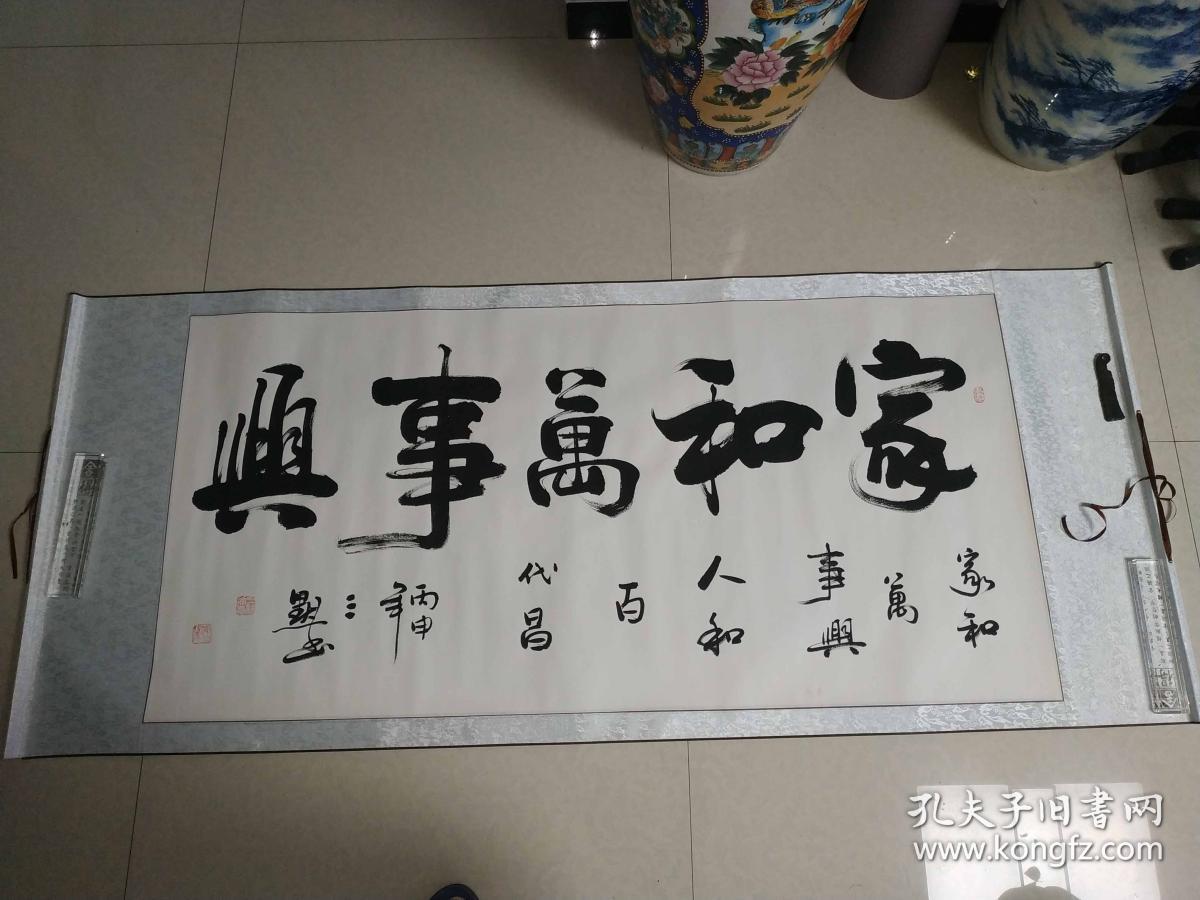 家和萬事興
家和
萬
事興
人和
百
代昌
丙申
年
書
孔夫子旧书网
www.kongfz.com